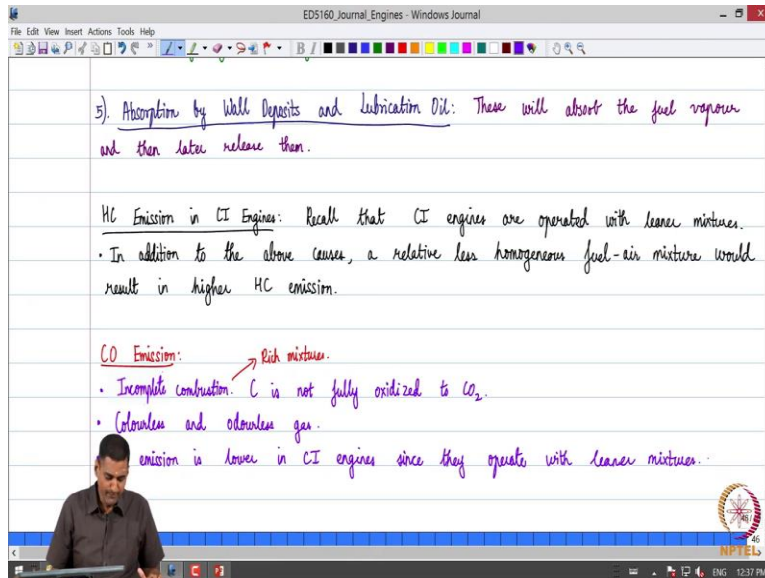 ED5160_Journal_Engines - Windows Journal
File Edit View Insert Actions Tools Help
5). Absorption by Wall Deposits and Lubrication Oil: These will absorb the fuel vapour
and then later release them.
HC Emission in CI Engines: Recall that CI engines are operated with leaner mixtures.
• In addition to the above causes, a relative less homogeneous fuel-air mixture would
result in higher HC emission.
CO Emission:
Rich mixtures.
• Incomplete combustion. C is not fully oxidized to CO₂.
• Colourless and odourless gas.
emission is lower in CI engines since they operate with leaner mixtures.
46
NPTEL
ENG 12:37 PM